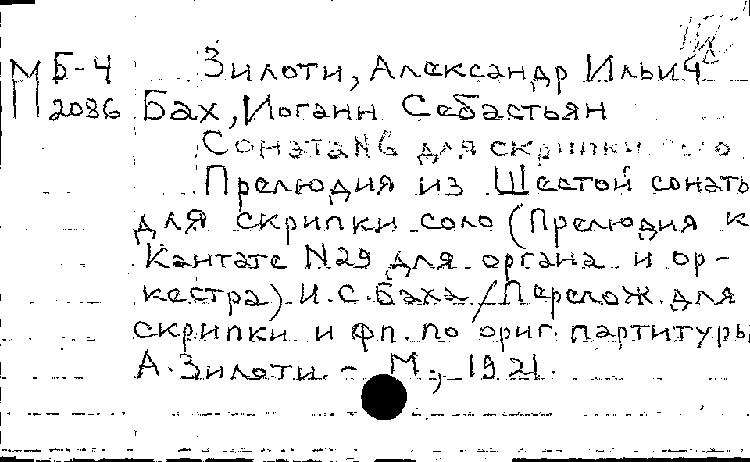 М Б-4 Зилоти, Александр Ильич
2086 Бах, Иоганн Себастьян
Соната N6 для скрипки соло
Прелюдия из Шестой сонаты
для скрипки соло (Прелюдия к
Кантате N29 для органа и ор-
кестра) И.С.Баха / Перелож. для
скрипки и фп. по ориг. партитуры
А. Зилоти. - М., 1921.